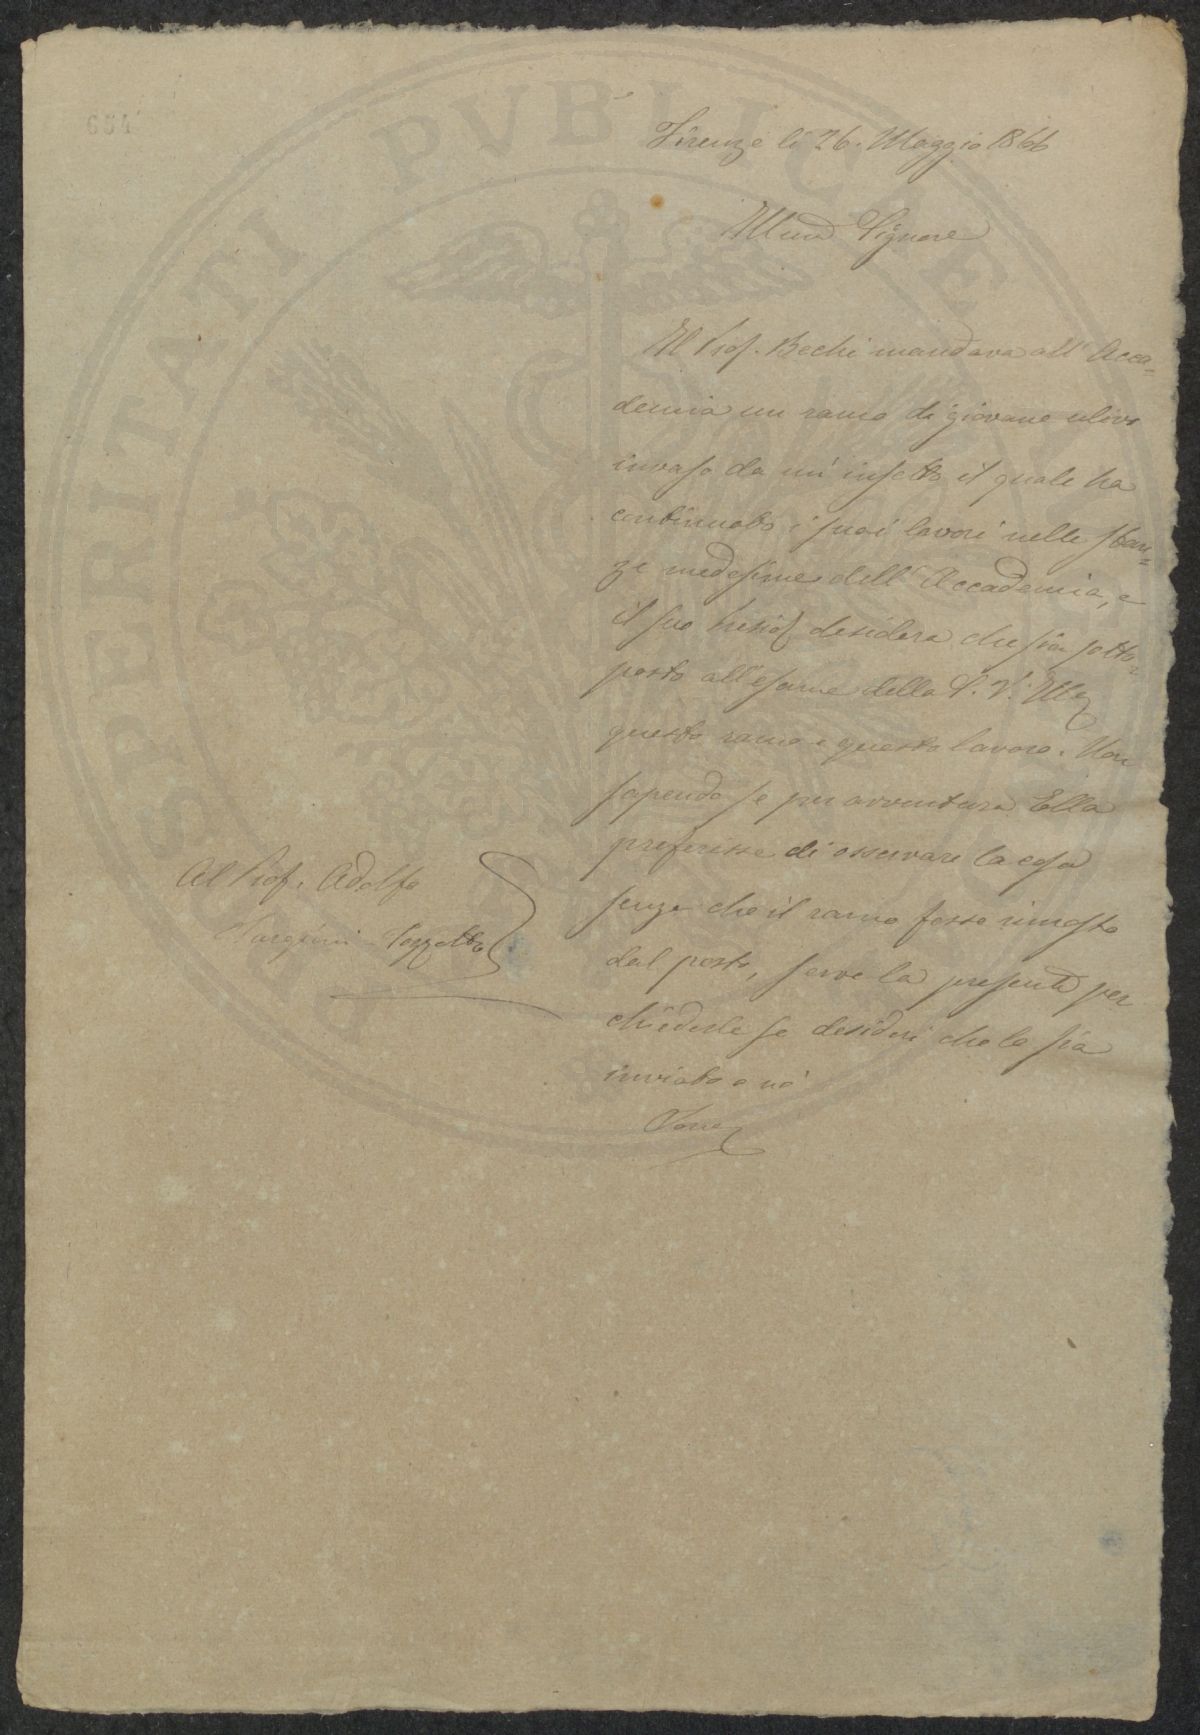 654
Firenze li 26. Maggio 1866
Illmo Signore
Il Prof. Bechi mandava all' Acca=
demia un ramo di giovane ulivo
invaso da un' insetto il quale ha
continuato i suoi lavori nelle stan=
ze medesime dell' Accademia, e
il suo desidera che sia sotto=
posto all' esame della S. V. Ill
questo ramo e questo lavoro. Non
sapendo se per avventura Ella
preferisse di osservare la cosa
senza che il ramo fosse rimosto
dal posto, serve la presente per
chiederle se desideri che le sia
inviato o nò
Al Prof. Adolfo
Targioni Tozzetti
PROSPERITATI PVBLICAE